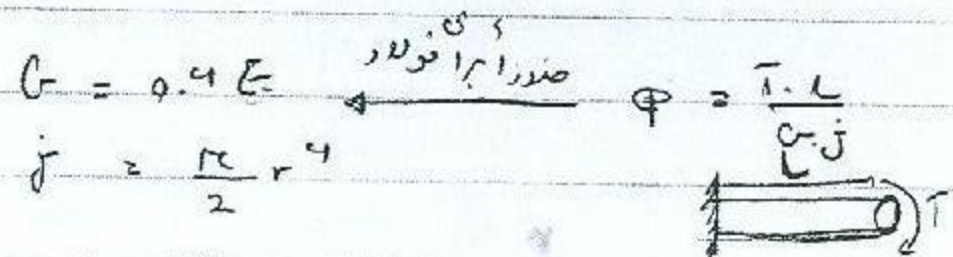 G = 0.4 E ← برا فولاد φ = T.L / G.j
j = π/2 r⁴
L
T